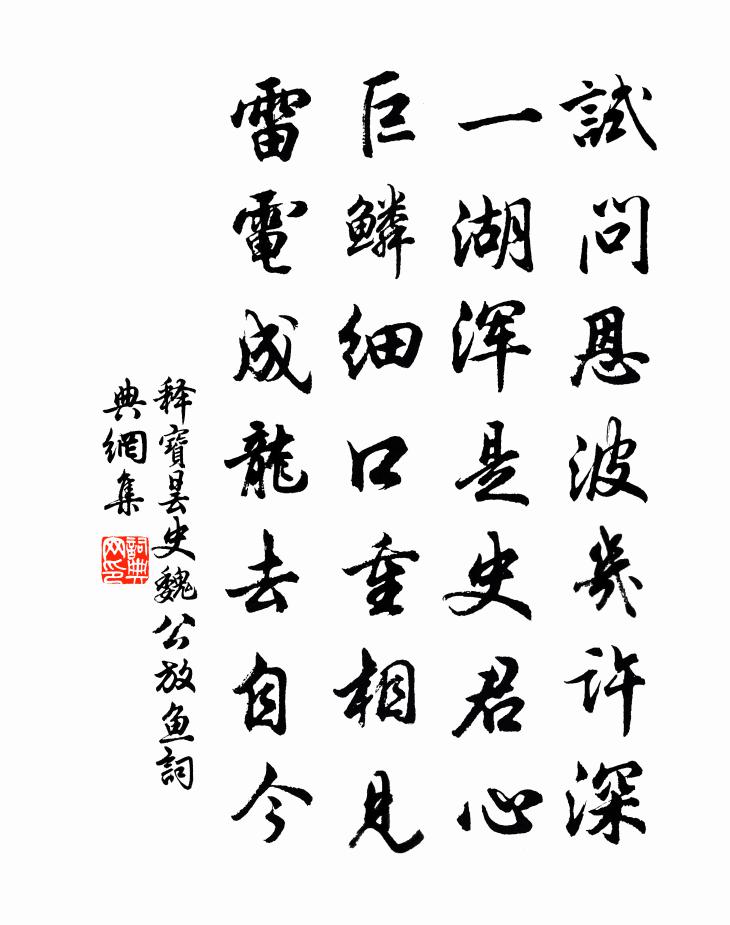 試問恩波幾許深
一湖渾是史君心
巨鱗細口重相見
雷電成龍去自今
释寶曇史魏公放魚詞
典網集
詞典網印